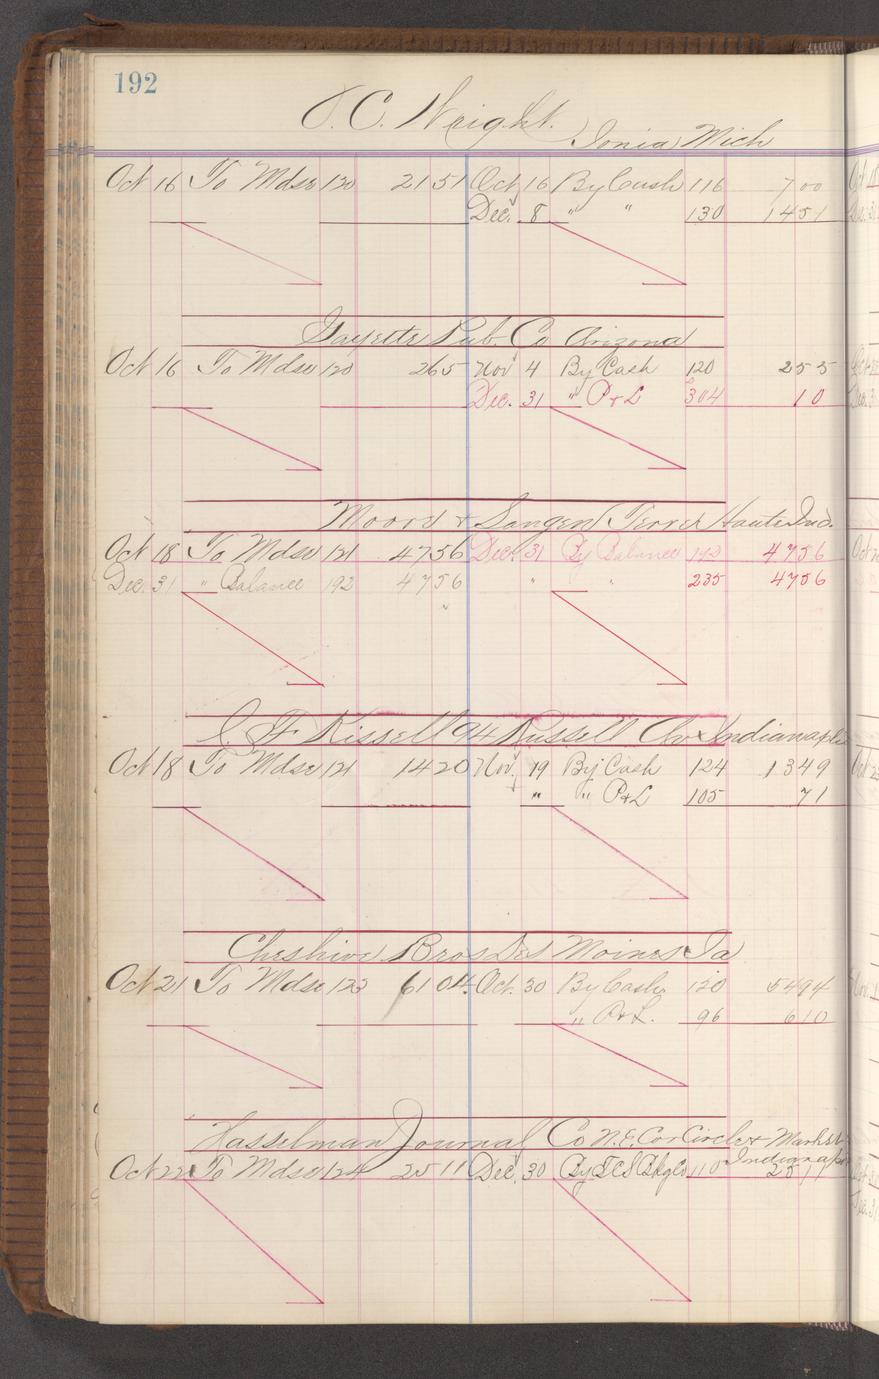 192
C. Wright.
Ionia Mich
Oct 16 To Mdse 120 21 51 Oct 16 By Cash 116 7 00
Dec. 8 " " 130 14 51
Gayette Pub. Co Arizona
Oct 16 To Mdse 120 2 65 Nov 4 By Cash 120 2 55
Dec. 31 " P & L 304 10
Moore & Langen Terre Haute Ind.
Oct 18 To Mdse 121 47 56 Dec. 31 By Balance 192 47 56
Dec. 31 " Balance 192 47 56 " " 235 47 56
Kissell 94 Russell Av. Indianapolis
Oct 18 To Mdse 121 14 20 Nov. 19 By Cash 124 13 49
" " P & L 105 71
Cheshire Bros Des Moines Ia
Oct 21 To Mdse 123 61 04 Oct. 30 By Cash 120 54 94
" P & L. 96 6 10
Hasselman Journal Co N.E. Cor Circle & Market
Indianap
Oct 22 To Mdse 124 25 11 Dec. 30 By 110 25 11